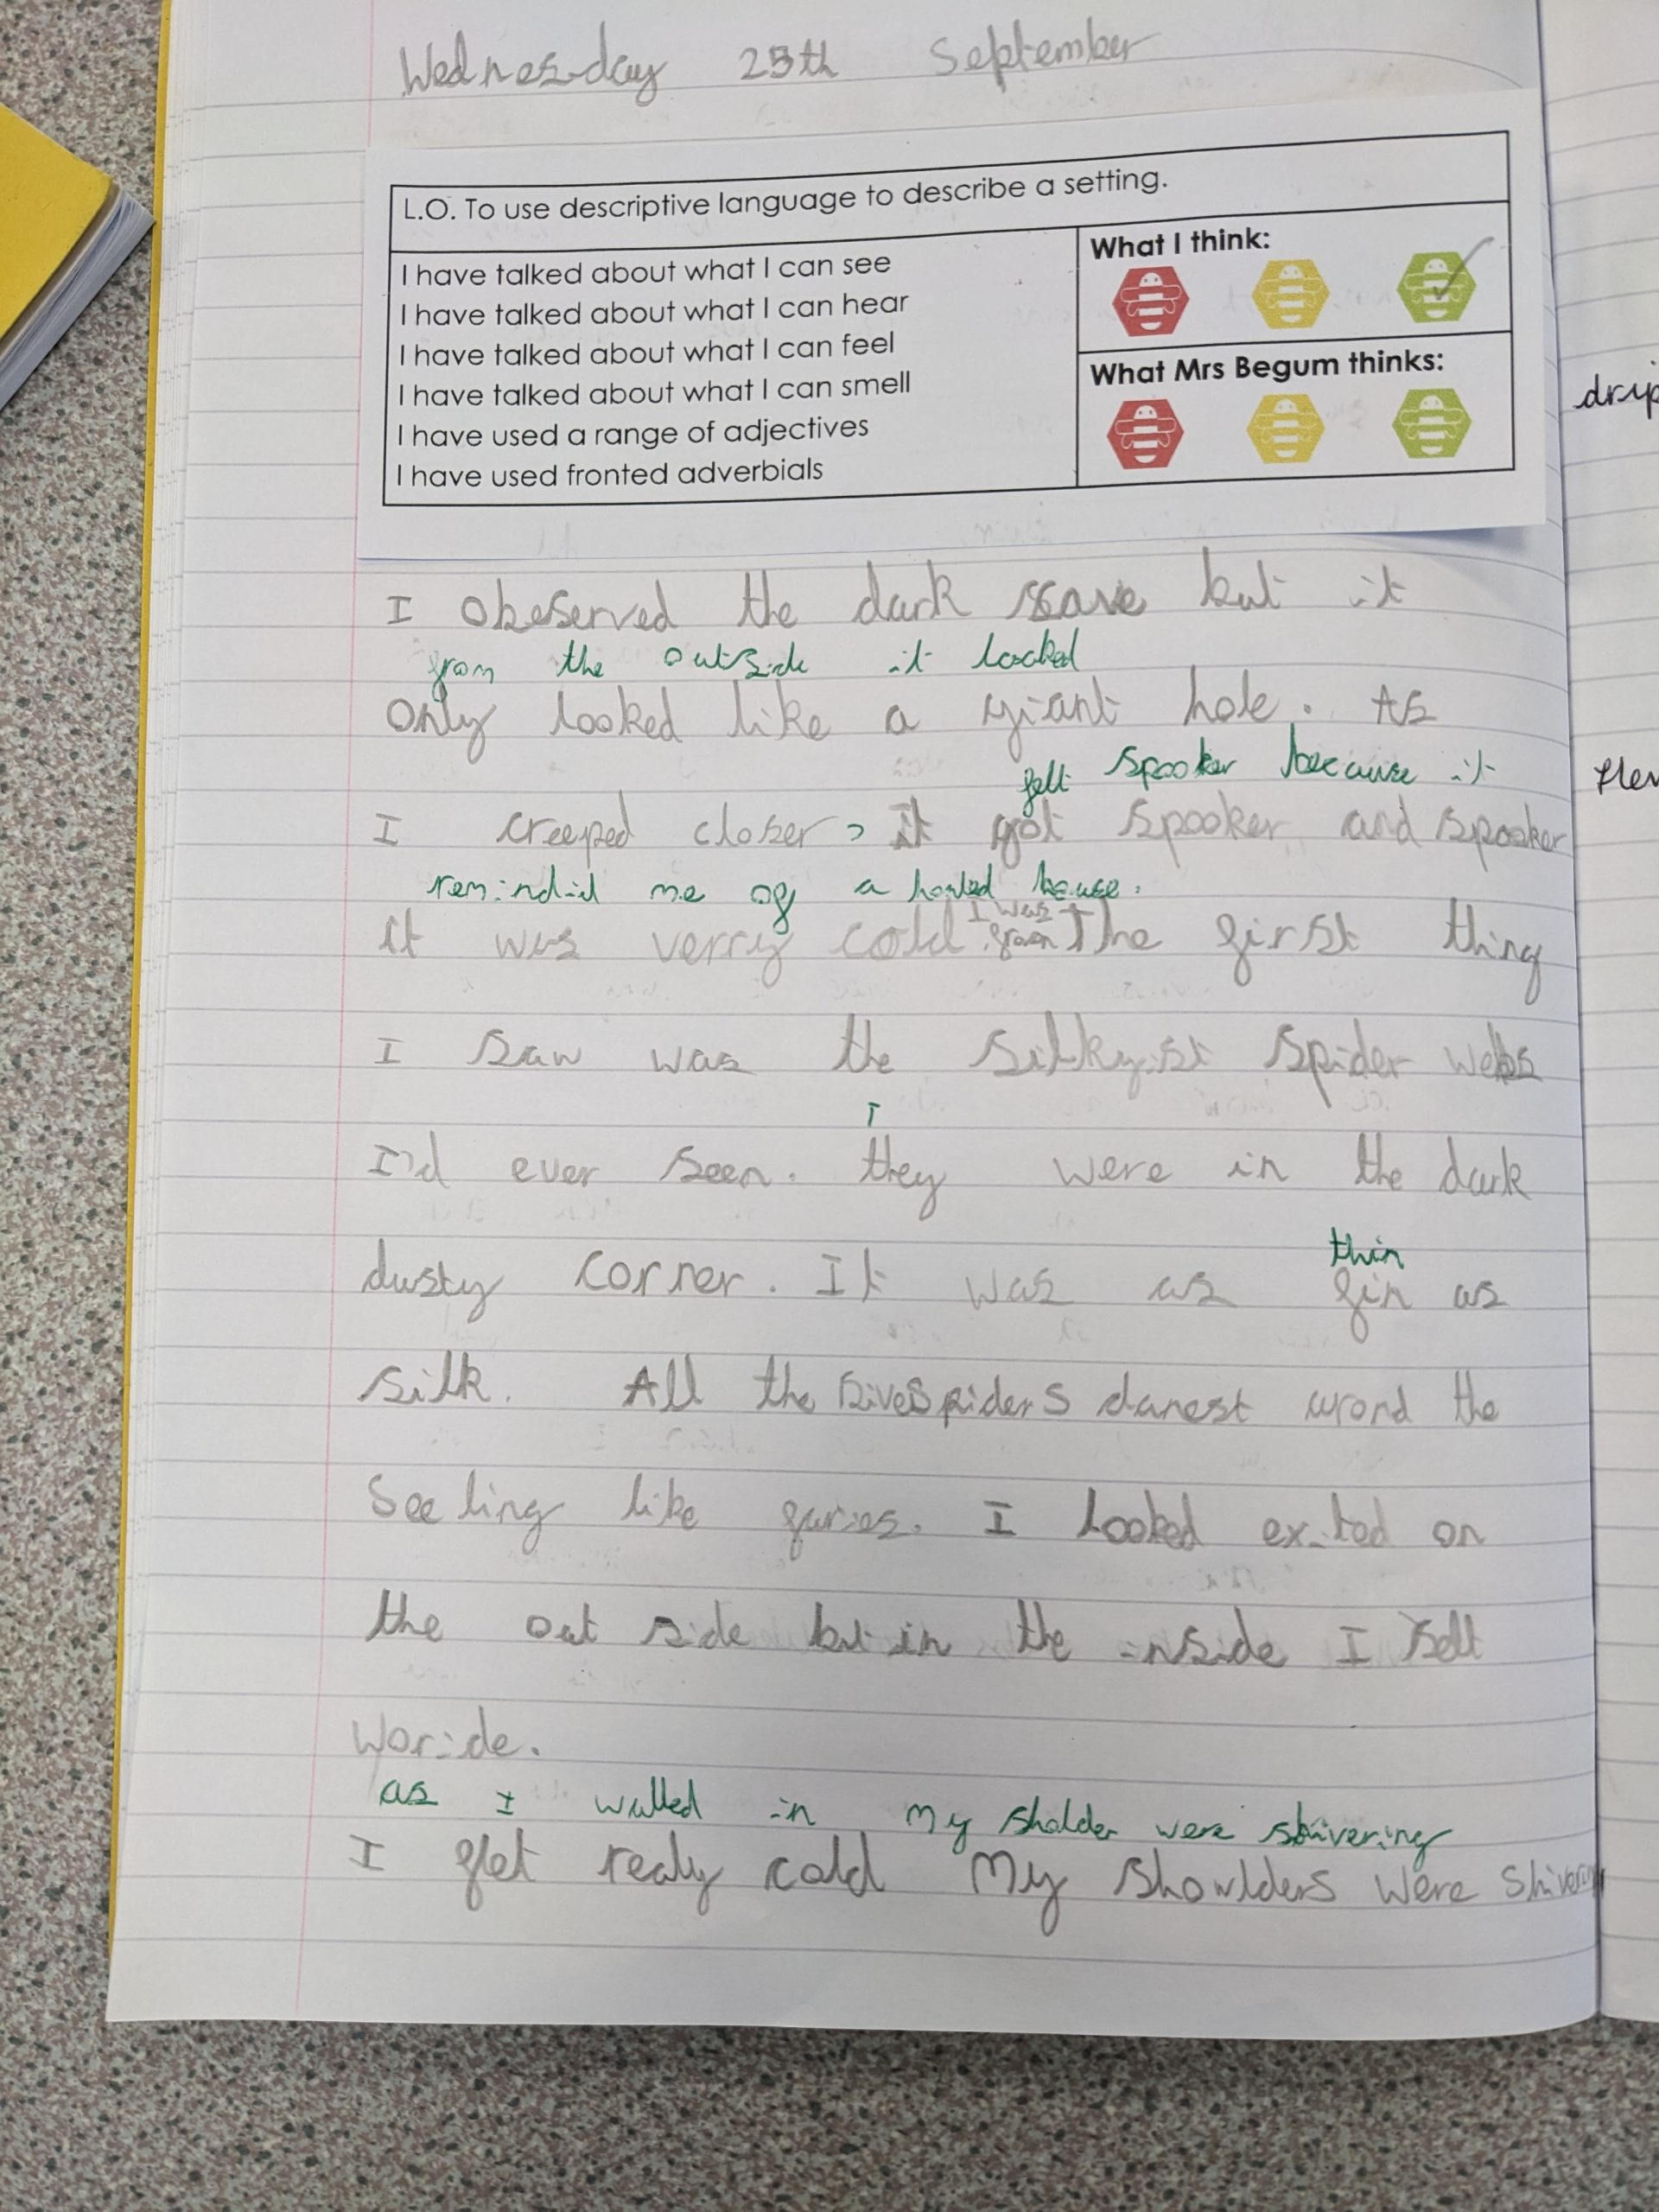 Wednesday 25th September
L.O. To use descriptive language to describe a setting.
I have talked about what I can see
I have talked about what I can hear
I have talked about what I can feel
I have talked about what I can smell
I have used a range of adjectives
I have used fronted adverbials
What I think:
What Mrs Begum thinks:
I obeserved the dark cave but it
from the outside it looked
only looked like a giant hole. As
felt spooker because it
I creeped closer, it got spooker and spooker
remindid me of a honted house.
it was verry cold I was The first thing
I saw was the silkyist spider webs
I'd ever seen. they were in the dark
T
dusty corner. It was as fin as
thin
silk. All the spiders danest arond the
seeling like faries. I looked exited on
the out side but in the inside I felt
woride.
as I walled in my sholder were shivering
I felt realy cold My shoulders were shivering
drip